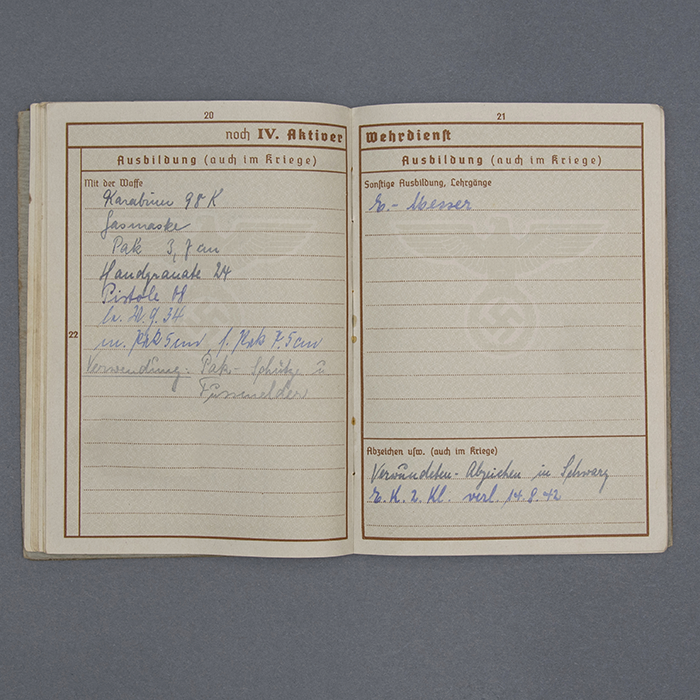 20
noch IV. Aktiver
Ausbildung (auch im Kriege)
Mit der Waffe
Karabiner 98 K
Gasmaske
Pak 3,7 cm
Handgranate 24
Pistole 08
M.G. 34
22
m. Pak 5 cm s. Pak 7.5 cm
Verwendung: Pak-Schütze u
Fussmelder
21
Wehrdienst
Ausbildung (auch im Kriege)
Sonstige Ausbildung, Lehrgänge
E.-Messer
Abzeichen usw. (auch im Kriege)
Verwundeten-Abzeichen in Schwarz
E. K. 2. Kl. verl. 14.8.42